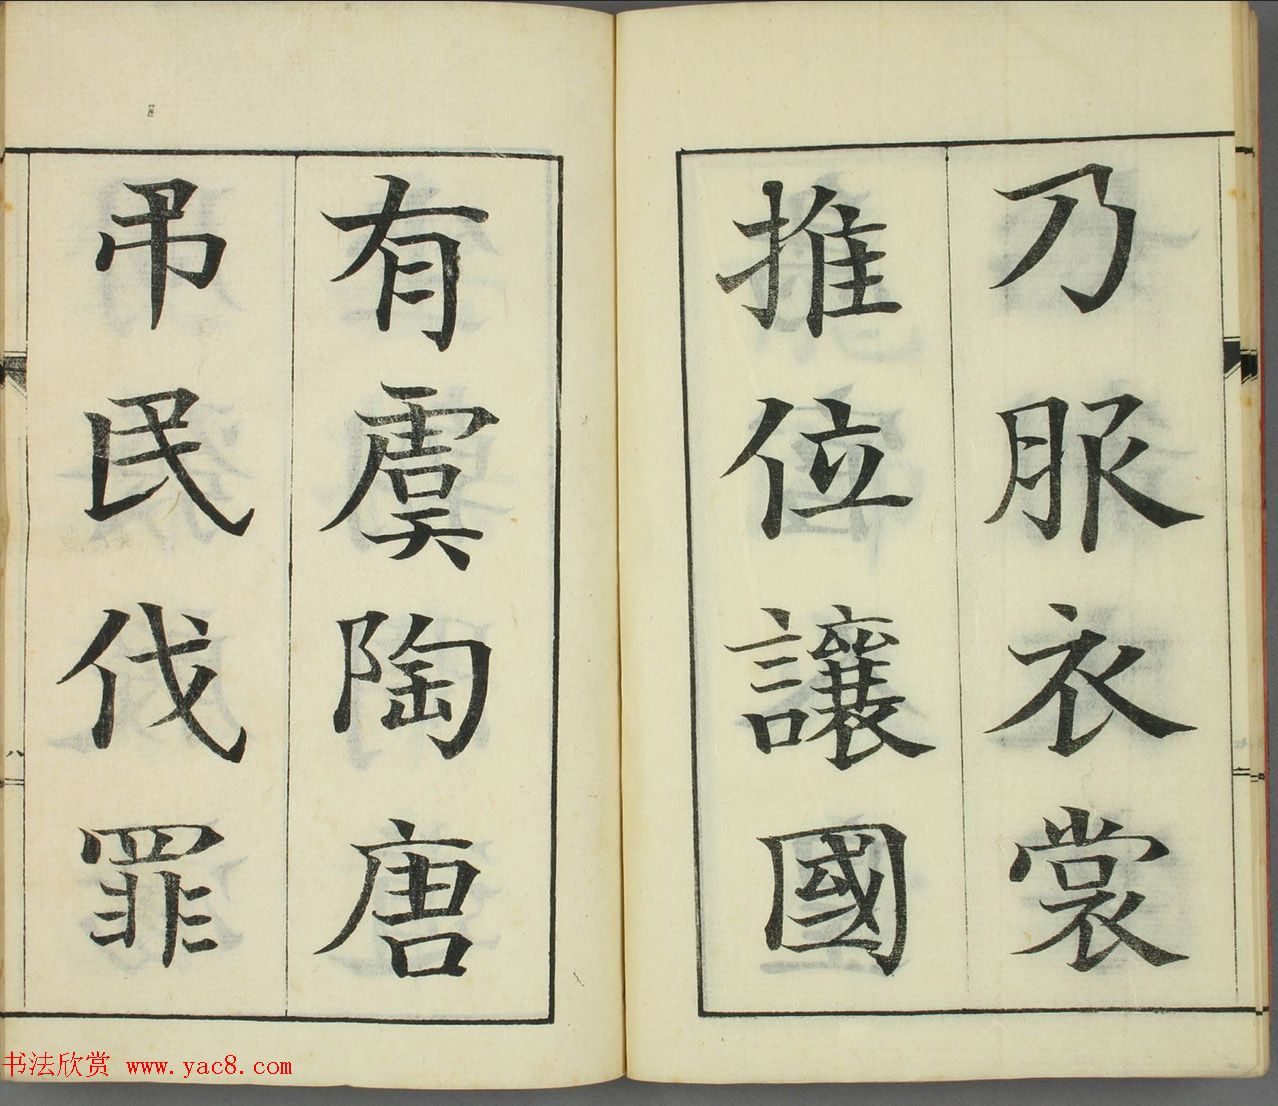 乃服衣裳
推位讓國
有虞陶唐
弔民伐罪
八
书法欣赏 www.yac8.com